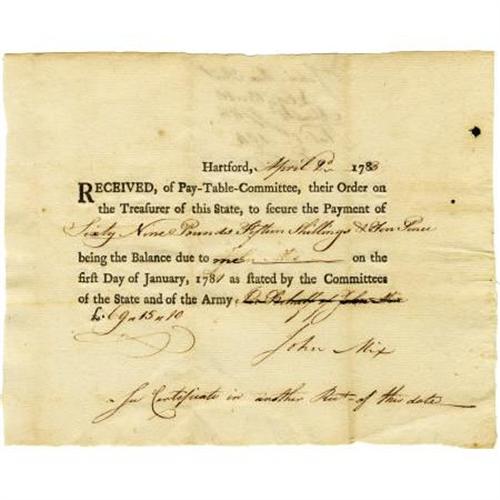 Hartford, April 9th 1783
RECEIVED, of Pay-Table-Committee, their Order on
the Treasurer of this State, to secure the Payment of
Sixty Nine Pounds Fifteen Shillings & Ten Pence
being the Balance due to me on the
first Day of January, 1781 as stated by the Committees
of the State and of the Army, In Behalf of John Mix
£69..15..10
John Mix
In Certificate in another Rect of this date